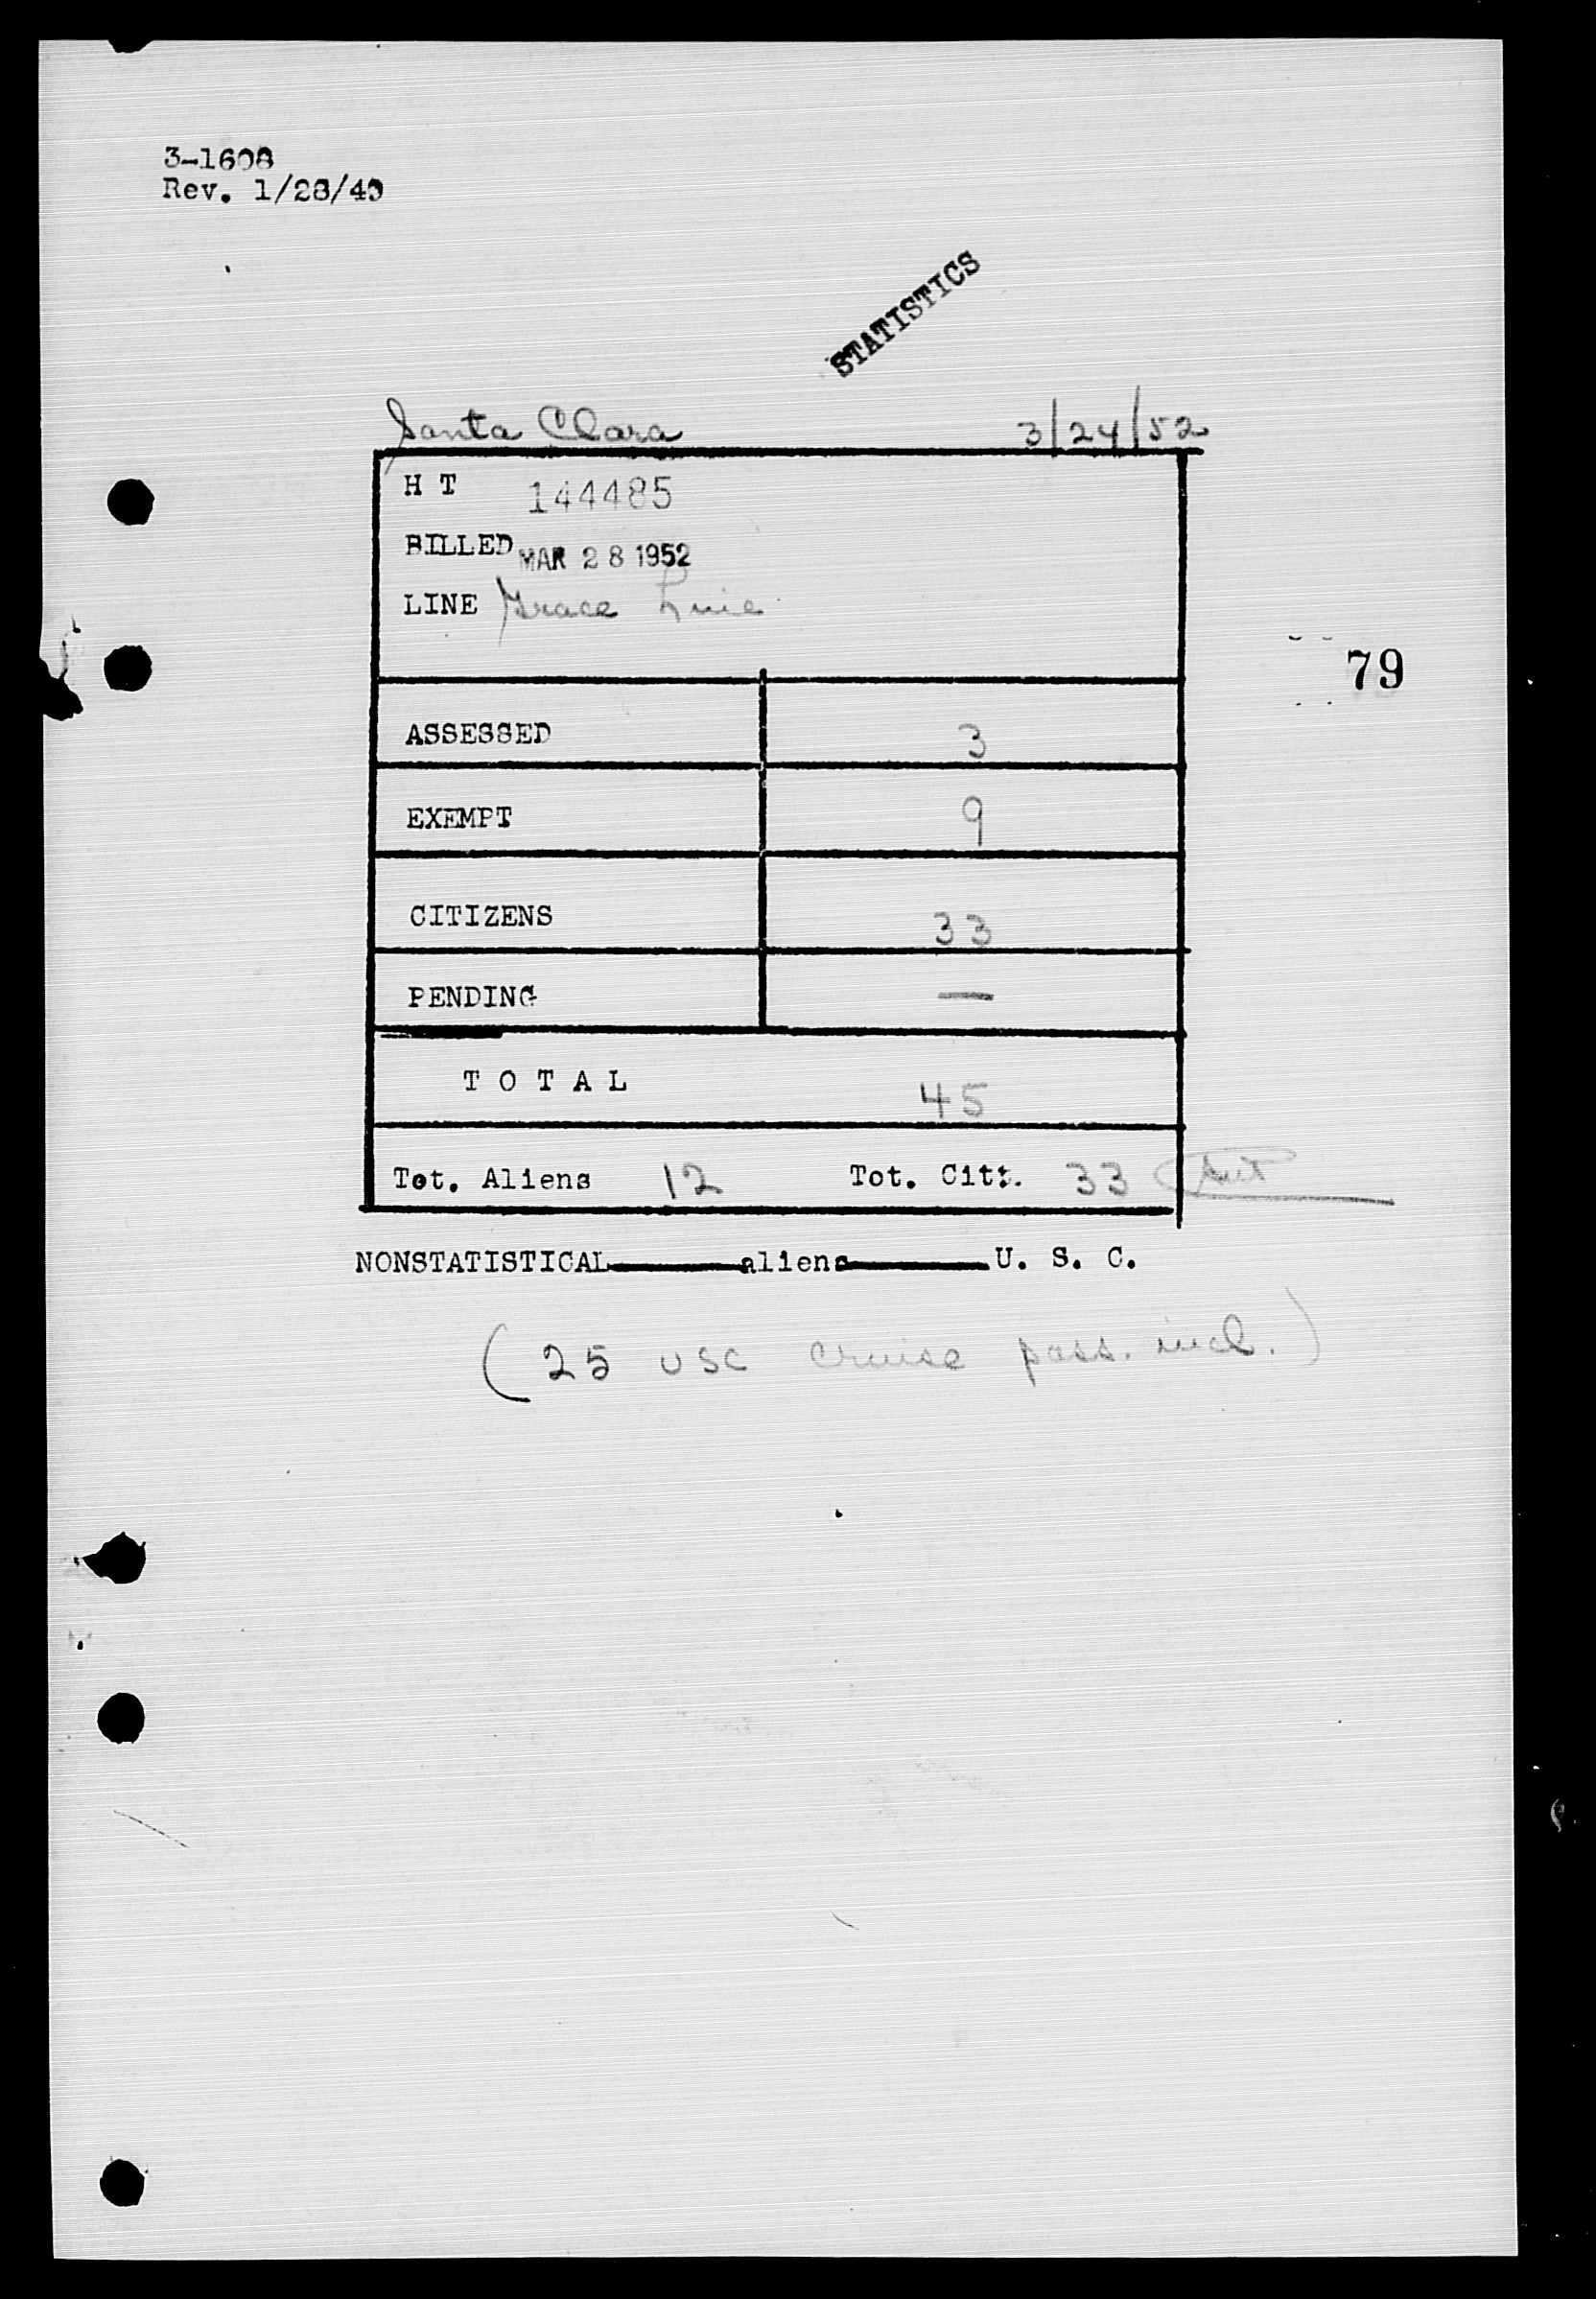 3-1608
Rev. 1/28/49
STATISTICS
Santa Clara 3/24/52
H T 144485
BILLED MAR 28 1952
LINE Grace Line
79
ASSESSED 3
EXEMPT 9
CITIZENS 33
PENDING —
T O T A L 45
Tot. Aliens 12 Tot. Citz. 33
NONSTATISTICAL aliens U. S. C.
(25 USC cruise pass. incl.)